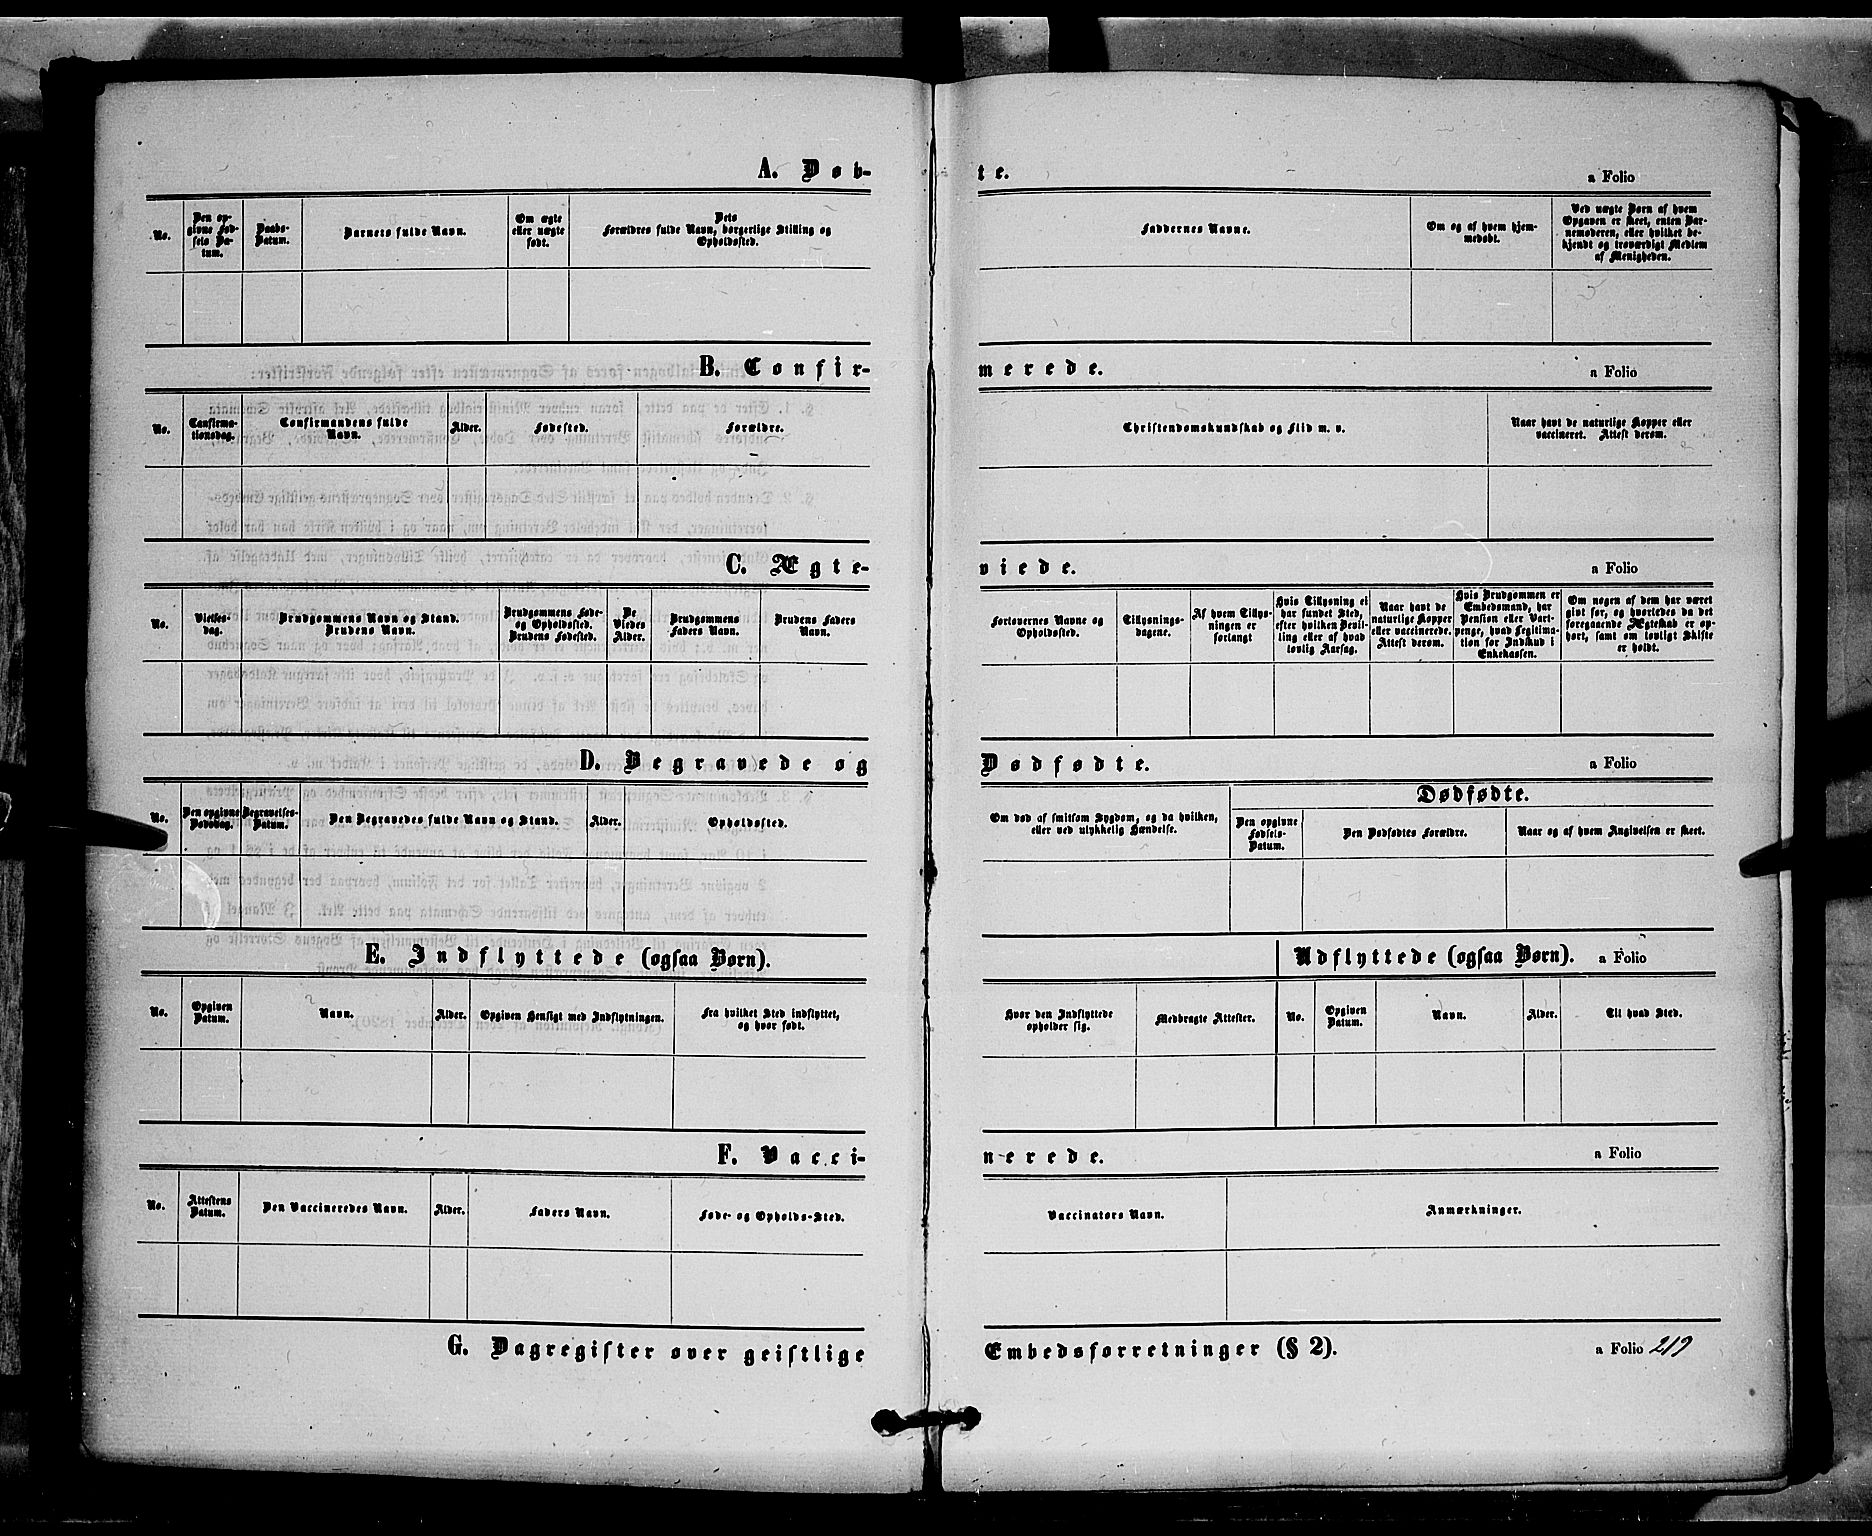 A. Døbte. a Folio
No.
Den opgivne Fødsels Datum.
Daabs-Datum.
Barnets fulde Navn.
Om ægte eller uægte født.
Dets Forældres fulde Navn, borgerlige Stilling og Opholdssted.
Faddernes Navne.
Om og af hvem hjemmedøbt.
Ved uægte Børn af hvem Opgaven er skeet, enten Barnemoderen, eller hvilket bekjendt og troværdigt Medlem af Menigheden.
B. Confirmerede. a Folio
No.
Confirmationsdag.
Confirmandens fulde Navn.
Alder.
Fødested.
Forældre.
Christendomskundskab og Flid m. v.
Naar havt de naturlige Kopper eller vaccineret. Attest derom.
C. Ægteviede. a Folio
No.
Vielsesdag.
Brudgommens Navn og Stand. Brudens Navn.
Brudgommens Føde- og Opholdssted. Brudens Fødested.
De Viedes Alder.
Brudgommens Faders Navn.
Brudens Faders Navn.
Forlovernes Navne og Opholdssted.
Tillysningsdagene.
Af hvem Tillysningen er forlangt
Hvis Tillysning ei har fundet Sted, efter hvilken Bevilling eller af hvad lovlig Aarsag.
Naar havt de naturlige Kopper eller vaccinerede. Attest derom.
Hvis Brudgommen er Embedsmand, har Pension eller Vartpenge, hvad Legitimation for Indskud i Enkekassen.
Om nogen af dem har været gift før, og hvorledes da det foregaaende Ægteskab er ophørt, samt om lovligt Skifte er holdt.
D. Begravede og Dødfødte. a Folio
No.
Den opgivne Dødsdag.
Begravelses-Datum.
Den Begravedes fulde Navn og Stand.
Alder.
Opholdssted.
Om død af smitsom Sygdom, og da hvilken, eller ved ulykkelig Hændelse.
Dødfødte.
Den opgivne Fødsels-Datum.
Den Dødfødtes Forældre.
Naar og af hvem Angivelsen er skeet.
E. Indflyttede (ogsaa Børn). Udflyttede (ogsaa Børn). a Folio
No.
Opgiven Datum.
Navn.
Alder.
Opgiven Hensigt med Indflytningen.
Fra hvilket Sted indflyttet, og hvor født.
Hvor den Indflyttede opholder sig.
Medbragte Attester.
No.
Opgiven Datum.
Navn.
Alder.
Til hvad Sted.
F. Vaccinerede. a Folio
No.
Attestens Datum.
Den Vaccineredes Navn.
Alder.
Faders Navn.
Føde- og Opholds-Sted.
Vaccinators Navn.
Anmærkninger.
G. Dagregister over geistlige Embedsforretninger (§ 2). a Folio 219